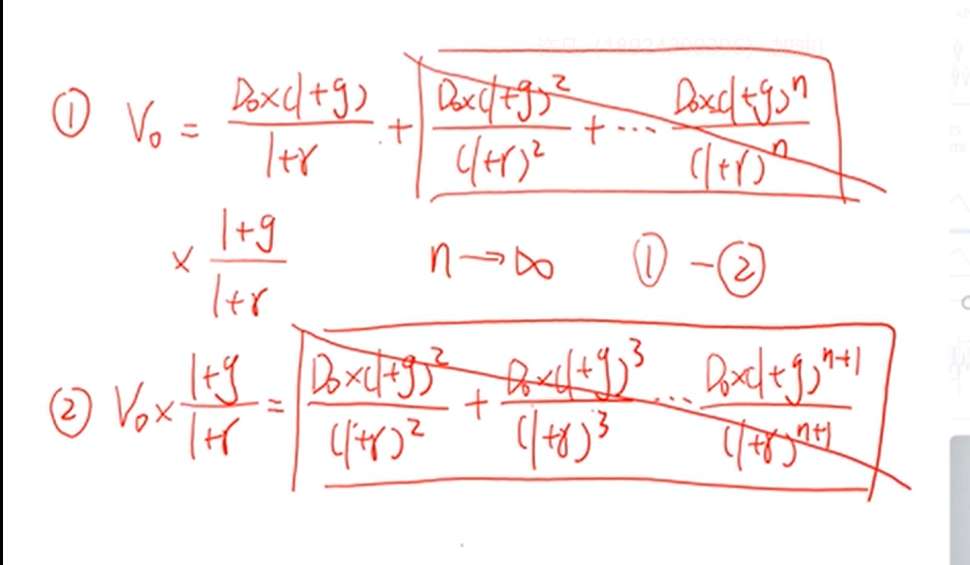 ① V₀ = D₀×(1+g)/(1+r) + D₀×(1+g)²/(1+r)² + ... D₀×(1+g)ⁿ/(1+r)ⁿ
× (1+g)/(1+r) n→∞ ① - ②
② V₀ × (1+g)/(1+r) = D₀×(1+g)²/(1+r)² + D₀×(1+g)³/(1+r)³ ... D₀×(1+g)ⁿ⁺¹/(1+r)ⁿ⁺¹